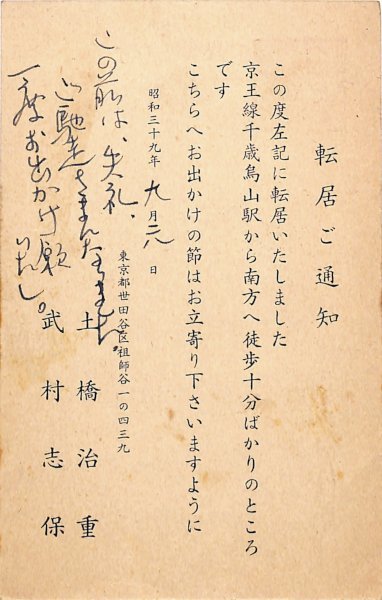 転居ご通知
この度左記に転居いたしました
京王線千歳烏山駅から南方へ徒歩十分ばかりのところ
です
こちらへお出かけの節はお立寄り下さいますように
昭和三十九年 九月 六日
東京都世田谷区祖師谷一の四三九
土橋治重
武村志保
この前は、失礼、
ご馳走さまになりました。
一度お出かけ願
いたし。